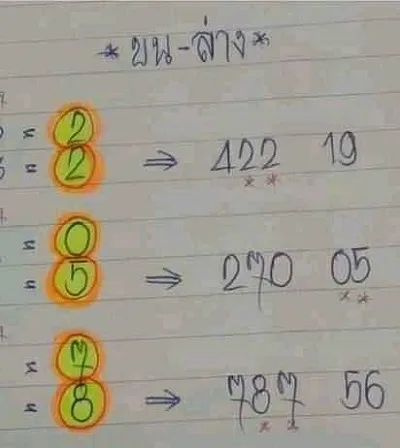 * บน - ล่าง *
= 2
= 2 ⇒ 422 19
* *
= 0
= 5 ⇒ 270 05
* *
= 7
= 8 ⇒ 787 56
* *